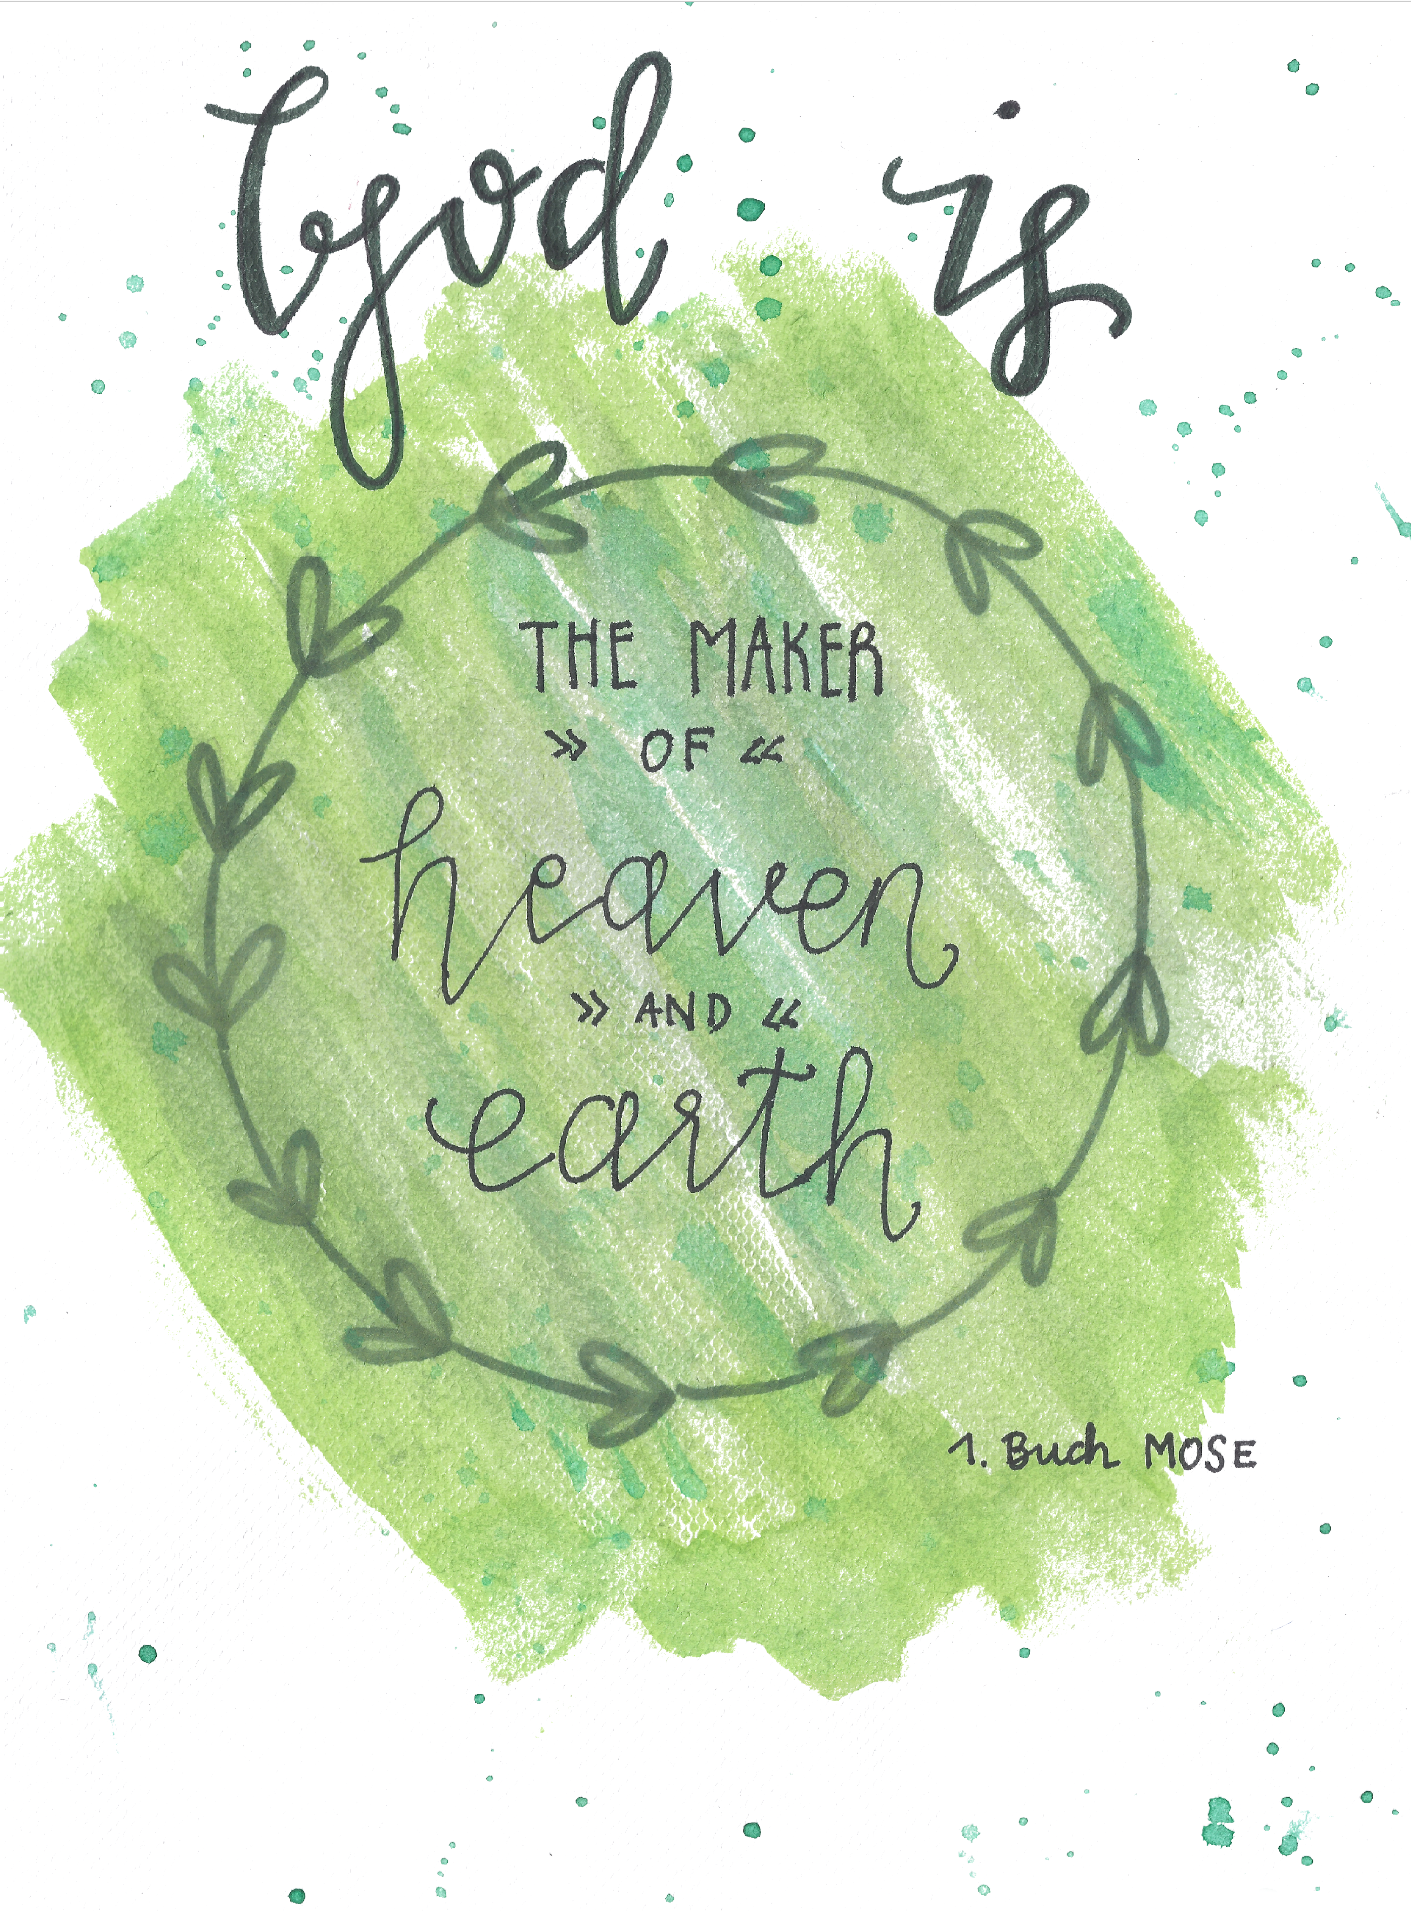 God is
THE MAKER
» OF «
heaven
» AND «
earth
1. Buch MOSE